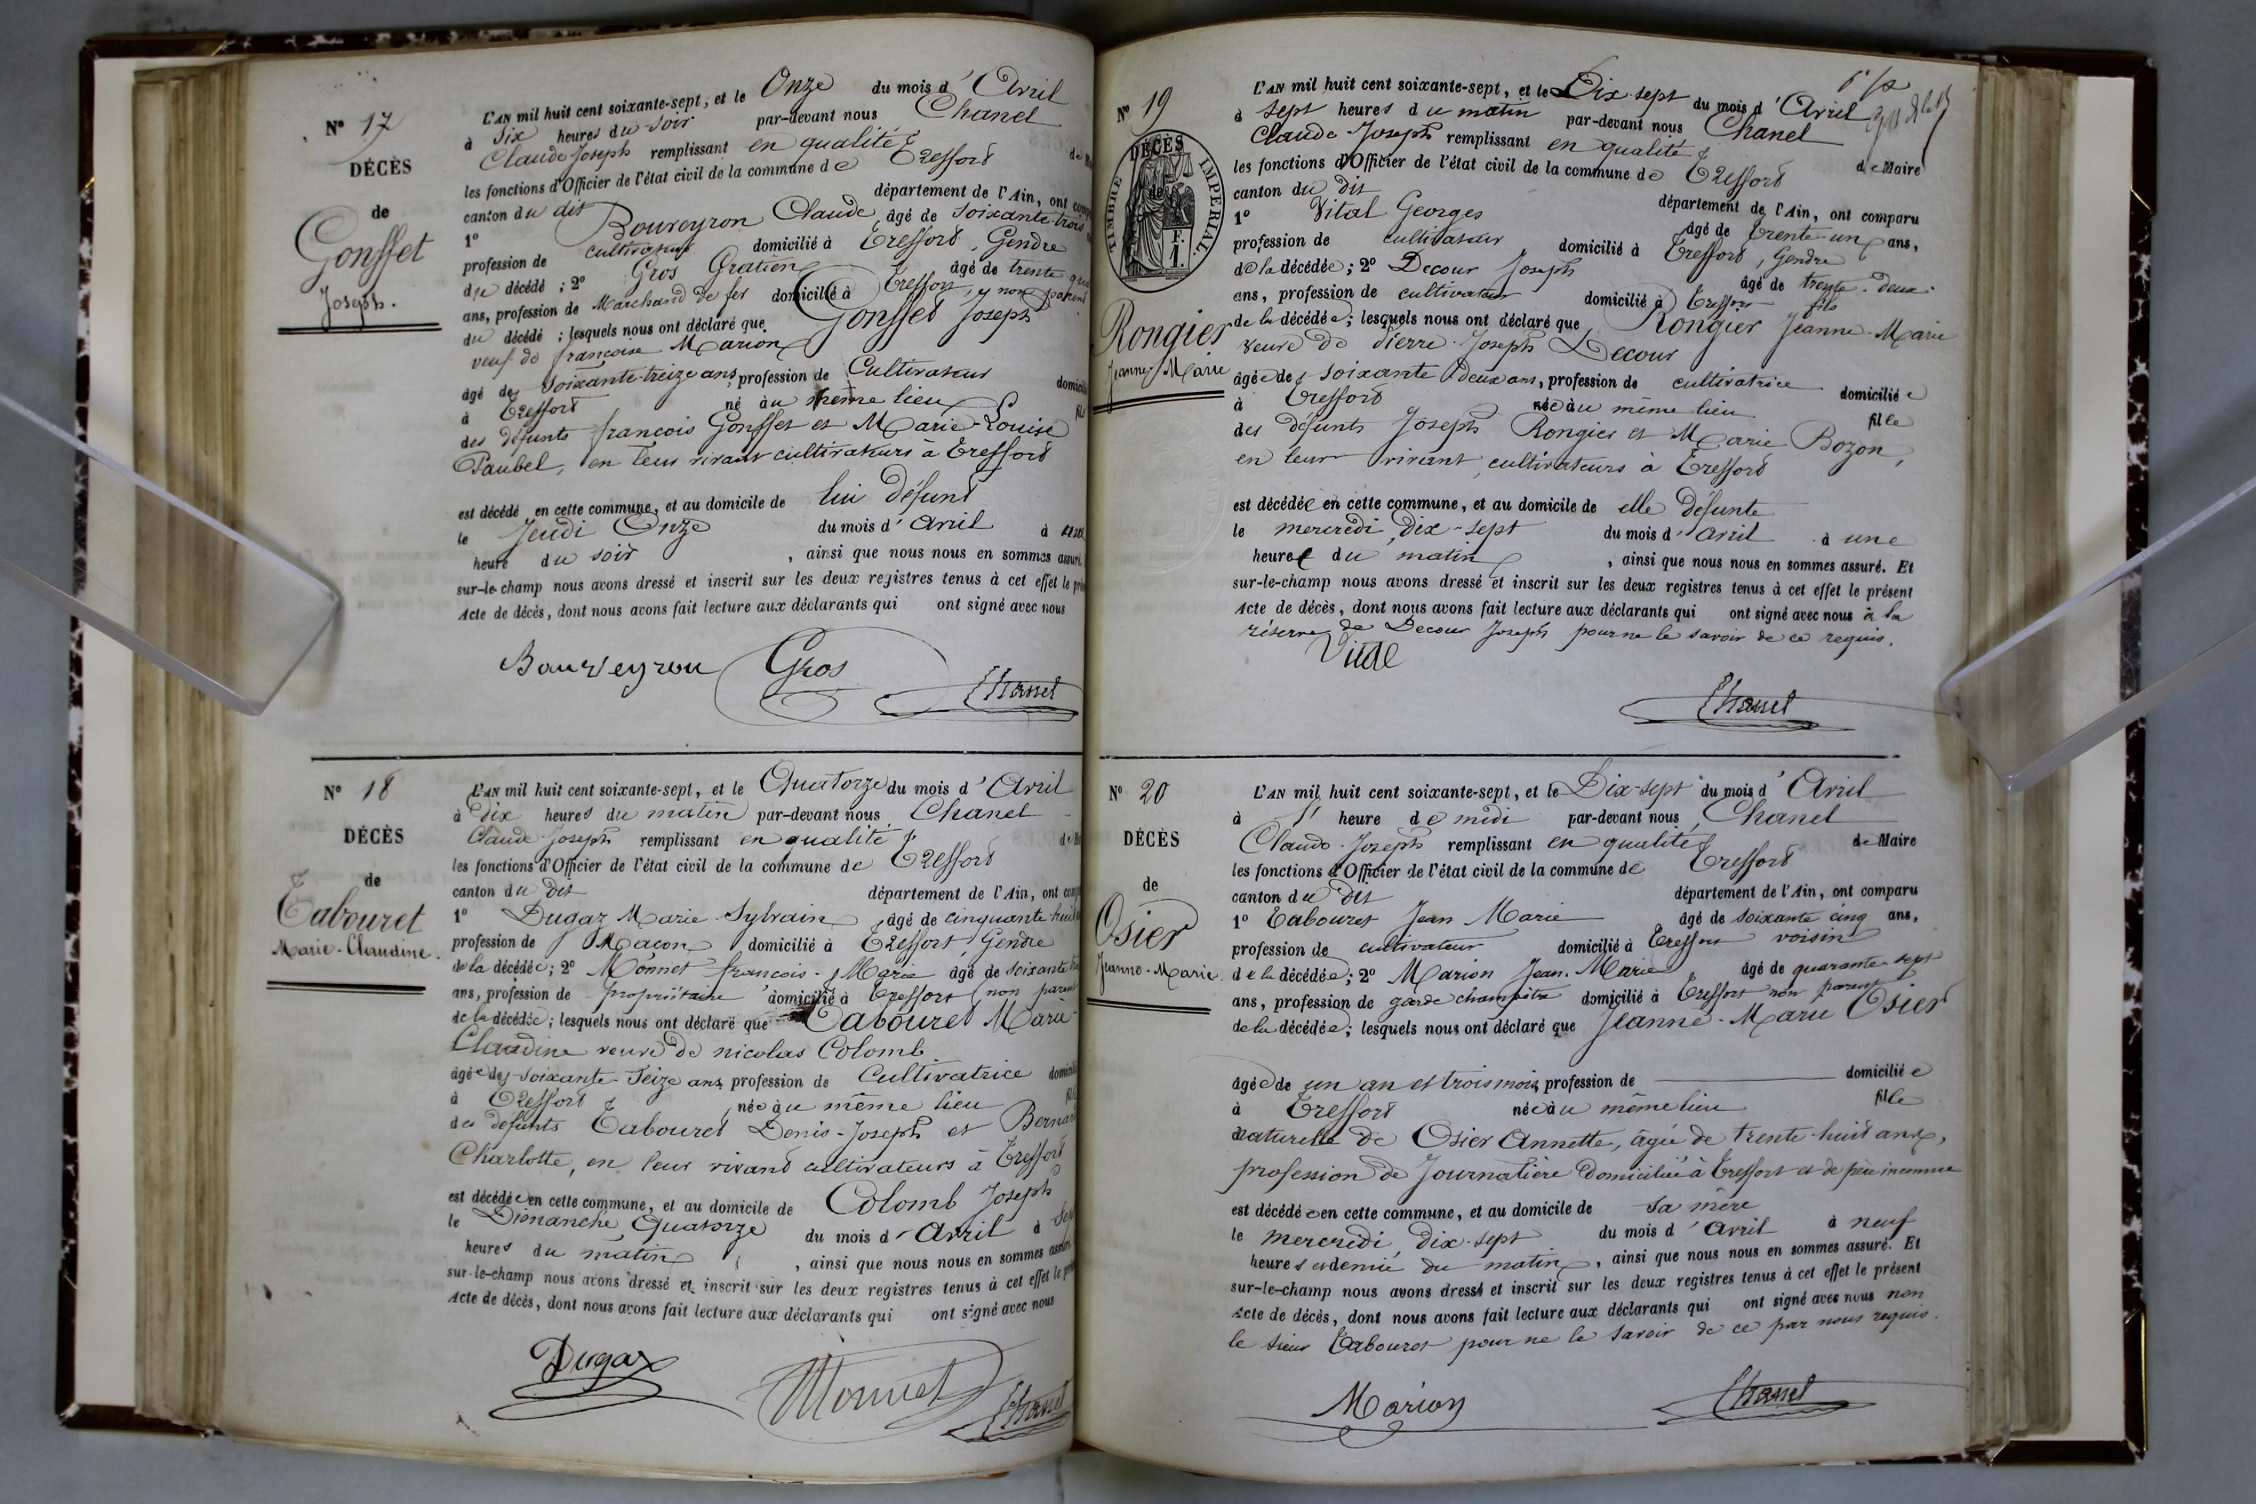 Nº 17
DÉCÈS
de
Gonffet
Joseph.
L'AN mil huit cent soixante-sept, et le Onze du mois d'Avril
à Six heures du soir par-devant nous Chanel
Claude Joseph remplissant en qualité
les fonctions d'Officier de l'état civil de la commune de Treffort
canton du dit département de l'Ain, ont
1º Bouveyron Claude, âgé de soixante-trois
profession de cultivateur domicilié à Treffort, Gendre
du décédé ; 2º Gros Gratien âgé de trente
ans, profession de Marchand de fer domicilié à Treffort, non parent
du décédé ; lesquels nous ont déclaré que Gonffet Joseph
veuf de françoise Marion
âgé de soixante-treize ans, profession de Cultivateur
à Treffort né au même lieu
des défunts françois Gonffet et Marie-Louise
Paubel, en leur vivant cultivateurs à Treffort
est décédé en cette commune, et au domicile de lui défunt
le Jeudi Onze du mois d'avril à
heure du soir, ainsi que nous nous en sommes
sur-le-champ nous avons dressé et inscrit sur les deux registres tenus à cet effet le
Acte de décès, dont nous avons fait lecture aux déclarants qui ont signé avec nous
Bouveyron Gros Chanel
Nº 18
DÉCÈS
de
Tabouret
Marie-Claudine.
L'AN mil huit cent soixante-sept, et le Quatorze du mois d'Avril
à Dix heures du matin par-devant nous Chanel
Claude-Joseph remplissant en qualité
les fonctions d'Officier de l'état civil de la commune de Treffort
canton du dit département de l'Ain, ont
1º Dugaz Marie-Sylvain, âgé de cinquante huit
profession de Maçon domicilié à Treffort, Gendre
de la décédée ; 2º Monnet françois-Marie âgé de soixante
ans, profession de propriétaire domicilié à Treffort non parent
de la décédée ; lesquels nous ont déclaré que Tabouret Marie-
Claudine veuve de nicolas Colomb
âgée de soixante-seize ans, profession de Cultivatrice
à Treffort, née au même lieu
des défunts Tabouret Denis-Joseph et
Charlotte, en leur vivant cultivateurs à Treffort
est décédée en cette commune, et au domicile de Colomb Joseph
le Dimanche Quatorze du mois d'Avril à
heures du matin, ainsi que nous nous en sommes
sur-le-champ nous avons dressé et inscrit sur les deux registres tenus à cet effet le
Acte de décès, dont nous avons fait lecture aux déclarants qui ont signé avec nous
Dugaz Monnet Chanel
Nº 19
DÉCÈS
de
TIMBRE IMPÉRIAL.
F.
1.
Rongier
Jeanne Marie
L'AN mil huit cent soixante-sept, et le Dix-sept du mois d'Avril
à sept heures du matin par-devant nous Chanel
Claude-Joseph remplissant en qualité de Maire
les fonctions d'Officier de l'état civil de la commune de Treffort
canton du dit département de l'Ain, ont comparu
1º Vital Georges âgé de trente-un ans,
profession de cultivateur domicilié à Treffort, Gendre
de la décédée ; 2º Decour Joseph âgé de trente-deux
ans, profession de cultivateur domicilié à Treffort fils
de la décédée ; lesquels nous ont déclaré que Rongier Jeanne-Marie
veuve de Pierre-Joseph Decour
âgée de soixante-deux ans, profession de cultivatrice domiciliée
à Treffort née au même lieu fille
des défunts Joseph Rongier et Marie Bozon,
en leur vivant cultivateurs à Treffort
est décédée en cette commune, et au domicile de elle défunte
le mercredi, dix-sept du mois d'avril à une
heure du matin, ainsi que nous nous en sommes assuré. Et
sur-le-champ nous avons dressé et inscrit sur les deux registres tenus à cet effet le présent
Acte de décès, dont nous avons fait lecture aux déclarants qui ont signé avec nous à la
réserve de Decour Joseph pour ne le savoir de ce requis.
Vital
Chanel
Nº 20
DÉCÈS
de
Osier
Jeanne-Marie.
L'AN mil huit cent soixante-sept, et le Dix-sept du mois d'Avril
à l' heure de midi par-devant nous Chanel
Claude-Joseph remplissant en qualité de Maire
les fonctions d'Officier de l'état civil de la commune de Treffort
canton du dit département de l'Ain, ont comparu
1º Tabouret Jean Marie âgé de soixante cinq ans,
profession de cultivateur domicilié à Treffort voisin
de la décédée ; 2º Marion Jean-Marie âgé de quarante-sept
ans, profession de garde champêtre domicilié à Treffort non parent
de la décédée ; lesquels nous ont déclaré que Jeanne-Marie Osier
âgée de un an et trois mois, profession de domiciliée
à Treffort née au même lieu fille
naturelle de Osier Annette, âgée de trente-huit ans,
profession de Journalière domiciliée à Treffort et de père inconnu
est décédée en cette commune, et au domicile de sa mère
le mercredi dix-sept du mois d'avril à neuf
heures et demie du matin, ainsi que nous nous en sommes assuré. Et
sur-le-champ nous avons dressé et inscrit sur les deux registres tenus à cet effet le présent
Acte de décès, dont nous avons fait lecture aux déclarants qui ont signé avec nous non
le sieur Tabouret pour ne le savoir de ce par nous requis.
Marion Chanel